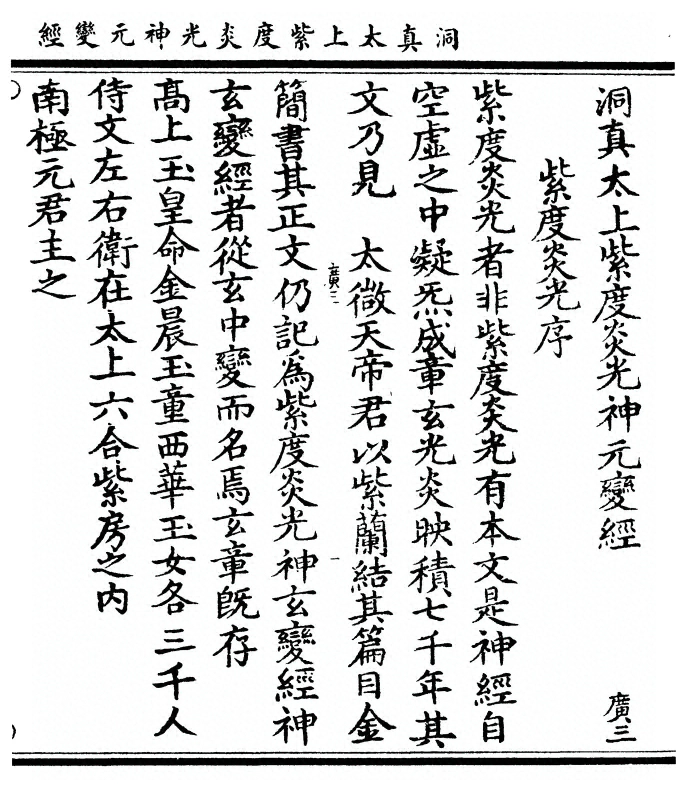 洞真太上紫度炎光神元變經
洞真太上紫度炎光神元變經 廣三
紫度炎光序
紫度炎光者非紫度炎光有本文是神經自
空虛之中凝炁成章玄光炎映積七千年其
文乃見 太微天帝君以紫蘭結其篇目金
廣三 一
簡書其正文仍記爲紫度炎光神玄變經神
玄變經者從玄中變而名焉玄章旣存
高上玉皇命金晨玉童西華玉女各三千人
侍文左右衛在太上六合紫房之内
南極元君主之